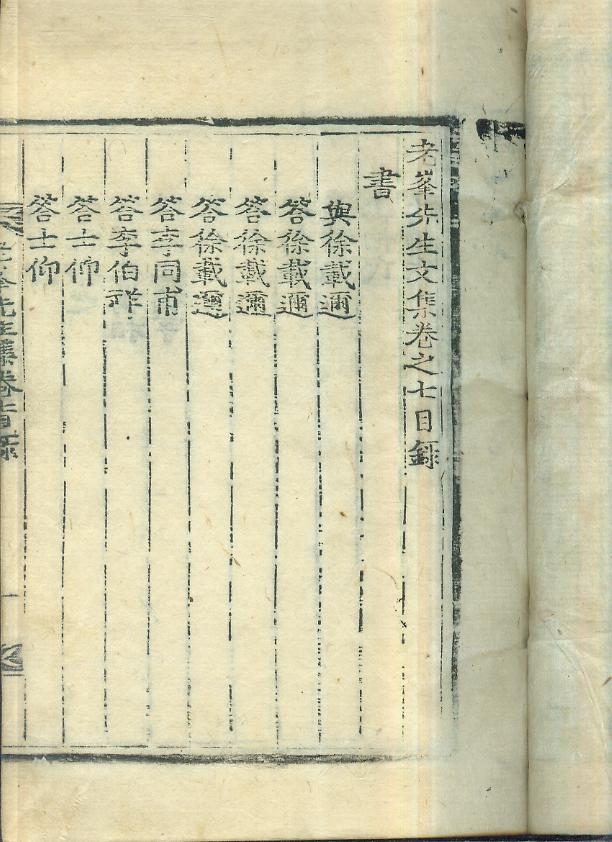 老峯先生文集卷之七目錄
書
與徐載邇
答徐載邇
答徐載邇
答徐載邇
答李同甫
答李伯祥
答士仰
答士仰
老峯先生集卷七目錄
一